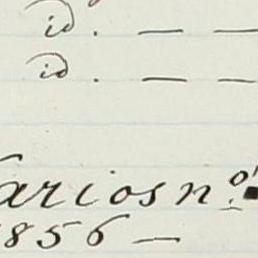 id. — —
id. — —
arios nº.
856 —